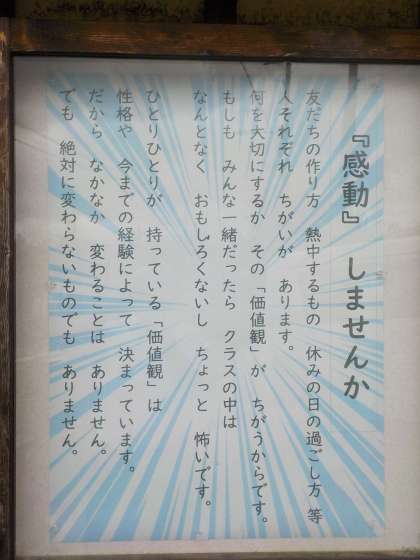 『感動』 しませんか
友だちの作り方 熱中するもの 休みの日の過ごし方 等
人それぞれ ちがいが あります。
何を大切にするか その 「価値観」が ちがうからです。
もしも みんな一緒だったら クラスの中は
なんとなく おもしろくないし ちょっと 怖いです。
ひとりひとりが 持っている「価値観」は
性格や 今までの経験によって 決まっています。
だから なかなか 変わることは ありません。
でも 絶対に変わらないものでも ありません。